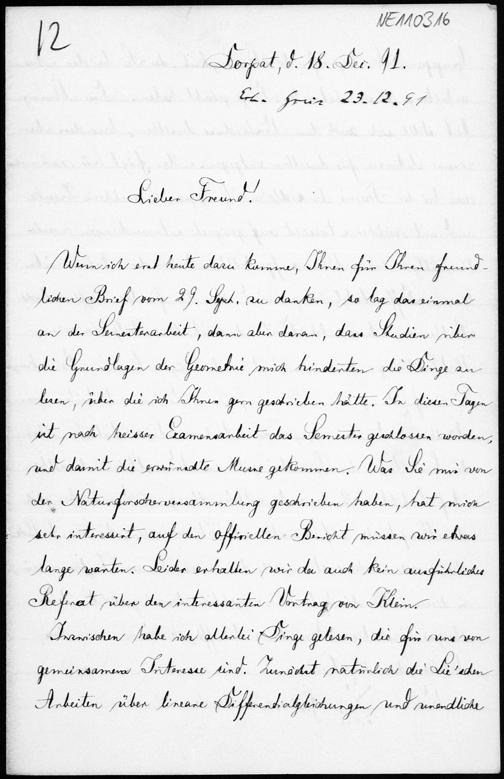 12
NE110316
Dorpat, d. 18. Dec. 91.
23-12-91
Lieber Freund!
Wenn ich erst heute dazu komme, Ihnen für Ihren freund-
lichen Brief vom 29. Sept. zu danken, so lag das einmal
an der Semesterarbeit, dann aber daran, dass Studien über
die Grundlagen der Geometrie mich hinderten die Dinge zu
lesen, über die ich Ihnen gern geschrieben hätte. In diesen Tagen
ist nach heisser Examensarbeit das Semester geschlossen worden,
und damit die erwünschte Musse gekommen. Was Sie mir von
der Naturforscherversammlung geschrieben haben, hat mich
sehr interessirt, auf den officiellen Bericht müssen wir etwas
lange warten. Leider erhalten wir da auch kein ausführliches
Referat über den interessanten Vortrag von Klein.
Inzwischen habe ich allerlei Dinge gelesen, die für uns von
gemeinsamem Interesse sind. Zunächst natürlich die Lie'schen
Arbeiten über lineare Differentialgleichungen und unendliche